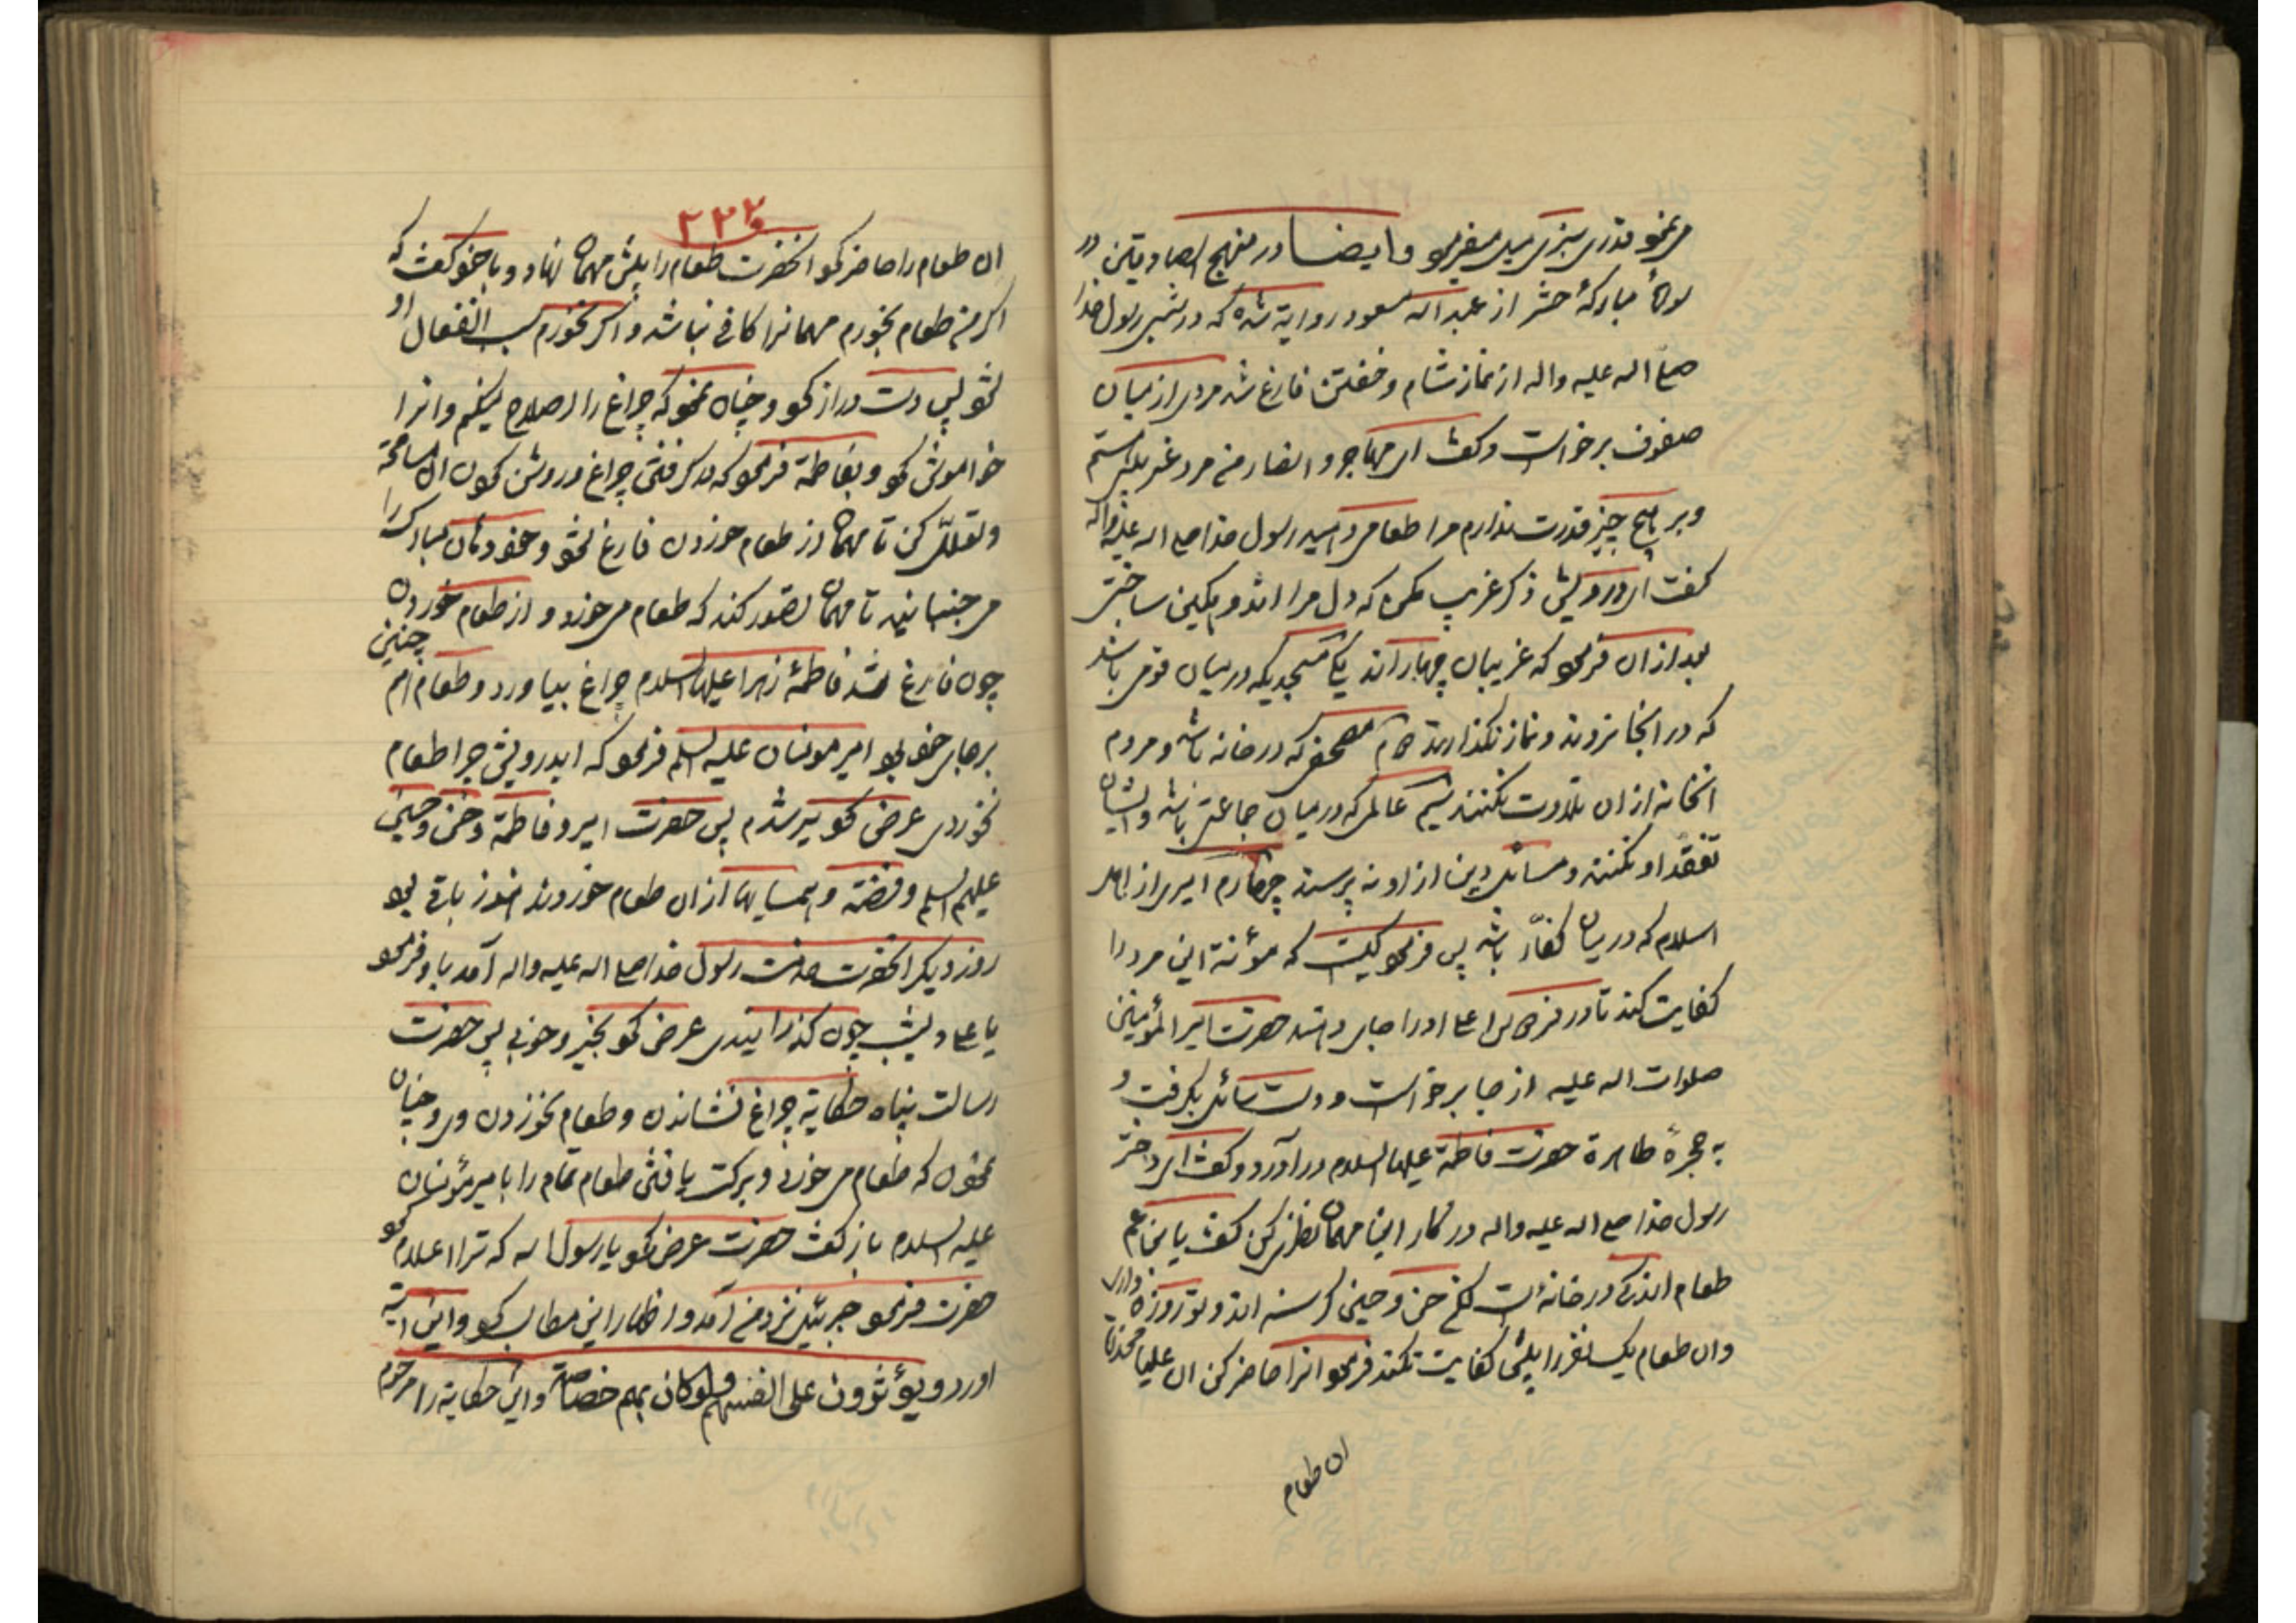 در منهج الصادقین در
سورهٔ مبارکهٔ حشر از عبد اله مسعود روایة شده که در شبی رسول خدا
صلی اله علیه واله از نماز شام و خفتن فارغ شد مردی از میان
صفوف برخواست و کفت ای مهاجر و انصار من مرد غریب
و بر هیچ چیز قدرت ندارم مرا طعامی دهید رسول خدا صلی اله علیه واله
کفت ای درویش ذکر غریب مکن که دل مرا اندوهکین ساختی
بعد از ان فرمود که غریبان چهاراند یکی مسجدیکه در میان قومی باشد
که در انجا نروند و نماز نکذارند دوم مصحفی که در خانه باشد و مردم
انخانه از ان تلاوت نکنند سیم عالمی که در میان جماعتی باشد و ایشان
تفقد او نکنند و مسائل دین از او نپرسند چهارم اسیری از اهل
اسلام که در میان کفّار باشد پس فرمود کیست که مؤنة این مرد را
کفایت کند تا در فردوس اعلی او را جای دهند حضرت امیر المؤمنین
صلوات اله علیه از جا برخواست و دست سائل بکرفت و
به حجرهٔ طاهرة حضرت فاطمة علیها السلام در آورد و کفت ای دختر
رسول خدا صلی اله علیه واله در کار این مهمان نظر کن کفت یابن عم
طعام اندکی در خانه است لکن حسن و حسین کرسنه اند و تو روزه داری
وان طعام یک نفر را بیش کفایت نکند فرمود انرا حاضر کن ان علیا مخدره
ان طعام
۲۲۲
ان طعام را حاضر کرد انحضرت طعام را پیش مهمان نهاد و با خود کفت که
اکر من طعام بخورم مهمانرا کافی نباشد و اکر نخورم سبب انفعال او
شود پس دست دراز کرد و چنان نمود که چراغ را اصلاح میکنم و انرا
خواموش کرد و بفاطمة فرمود که در کرفتن چراغ و روشن کردن ان مسامحة
و تعلّل کن تا مهمان از طعام خوردن فارغ شود و خود دهان مبارک را
می جنبانید تا مهمان تصور کند که طعام می خورد و از طعام خوردن
چون فارغ شد فاطمهٔ زهرا علیها السلام چراغ بیاورد و طعام هم چنین
بر جای خود بود امیر مومنان علیه السلم فرمود که ایدرویش چرا طعام
نخوردی عرض کرد سیر شدم پس حضرت امیر و فاطمة و حسن و حسین
علیهم السلم و فضّة و همسایها از ان طعام خوردند هنوز باقی بود
روز دیکر انحضرت خدمت رسول خدا صلی اله علیه واله آمد باو فرمود
یا علی دیشب چون کذرانیدی عرض کرد بخیر و خوبی پس حضرت
رسالت پناه حکایة چراغ نشاندن و طعام نخوردن وی و چنان
نمودن که طعام می خورد و برکت یافتن طعام تمام را با میر مؤمنان
علیه السلام باز کفت حضرت عرض کرد یا رسول اله که ترا اعلام کرد
حضرت فرمود جبرئیل نزد من آمد و اظهار این مطالب کرد و این آیة
اورد و یؤثرون علی انفسهم ولو کان بهم خصاصة و این حکایة را مرحوم